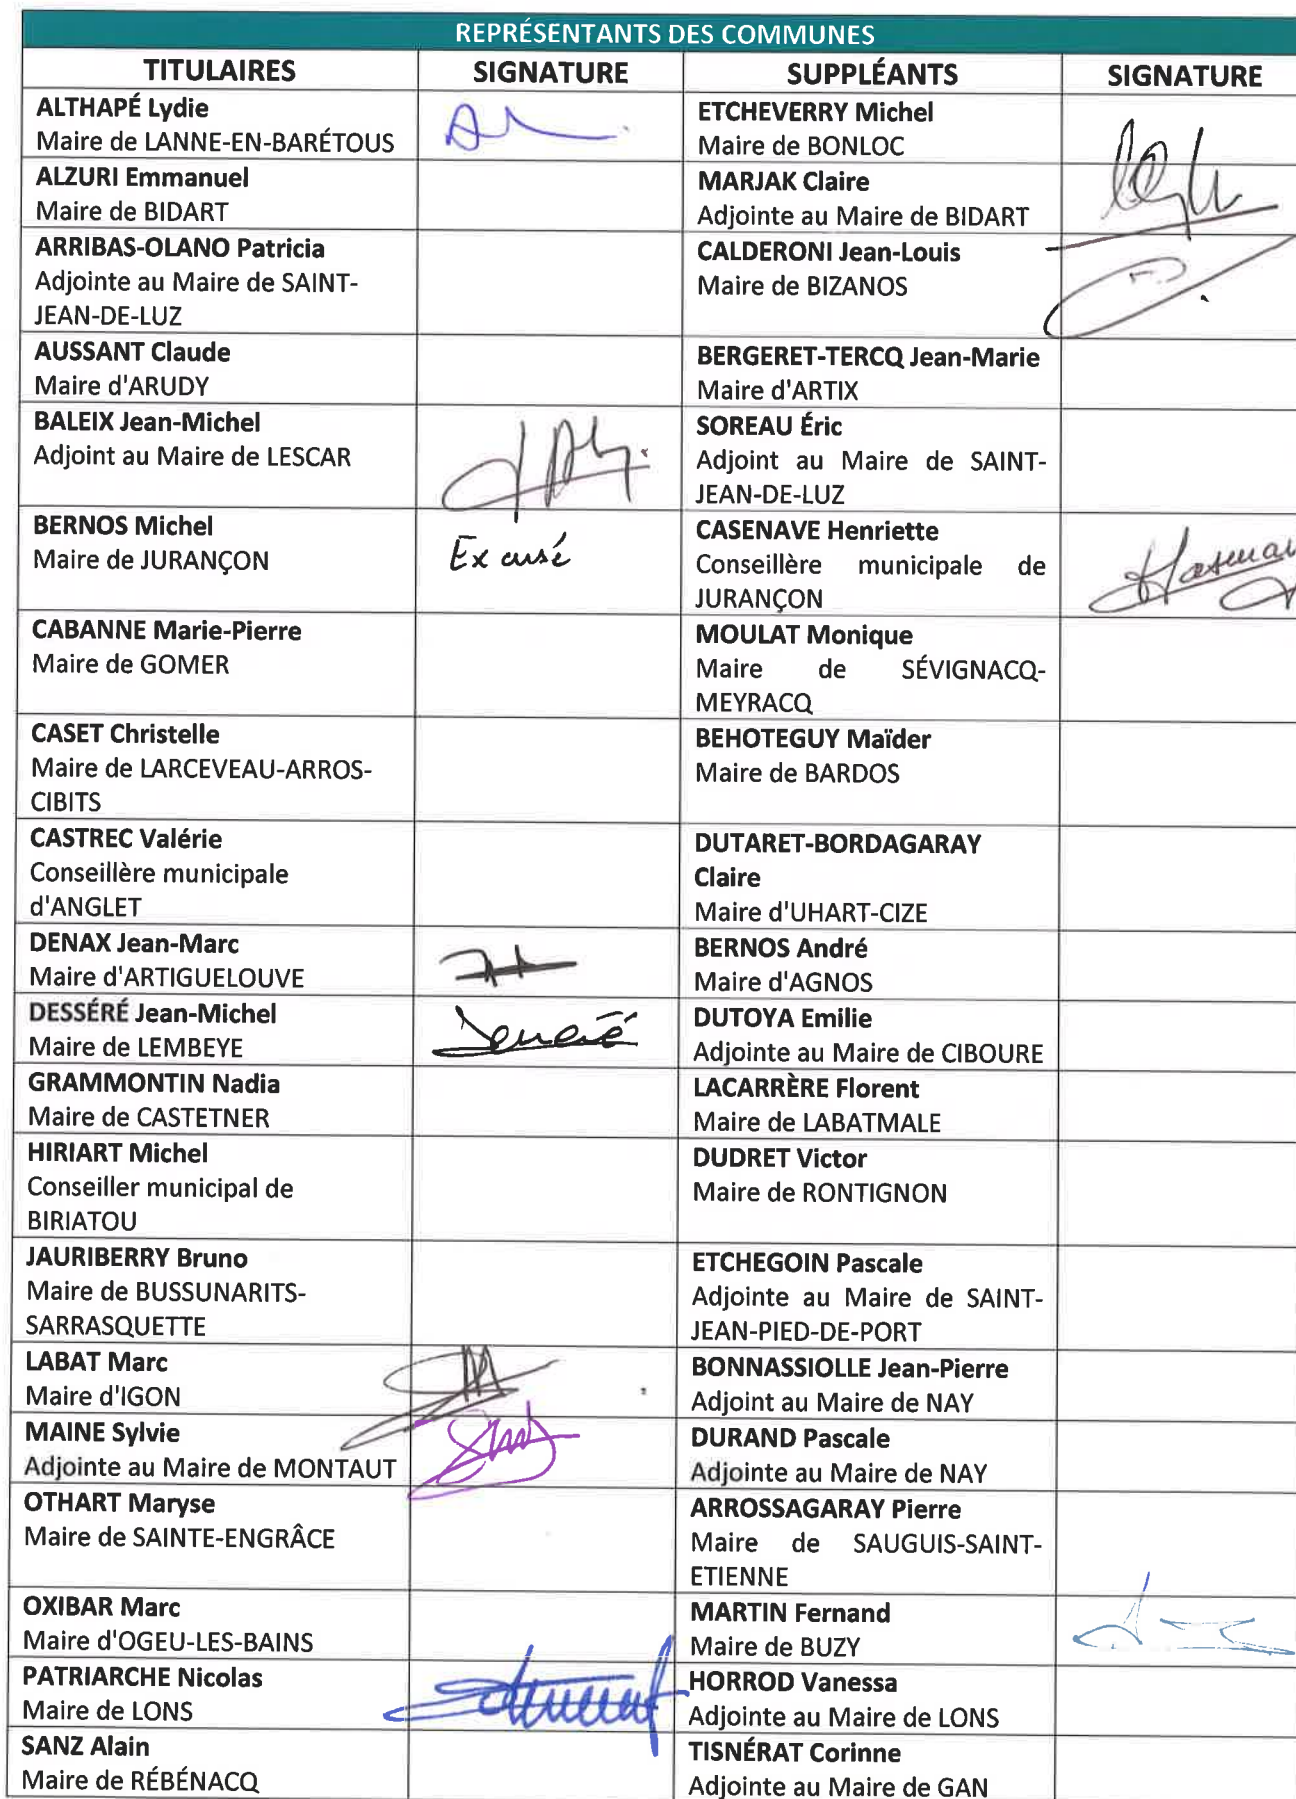 REPRÉSENTANTS DES COMMUNES
TITULAIRES SIGNATURE SUPPLÉANTS SIGNATURE
ALTHAPÉ Lydie
Maire de LANNE-EN-BARÉTOUS
ETCHEVERRY Michel
Maire de BONLOC
ALZURI Emmanuel
Maire de BIDART
MARJAK Claire
Adjointe au Maire de BIDART
ARRIBAS-OLANO Patricia
Adjointe au Maire de SAINT-
JEAN-DE-LUZ
CALDERONI Jean-Louis
Maire de BIZANOS
AUSSANT Claude
Maire d'ARUDY
BERGERET-TERCQ Jean-Marie
Maire d'ARTIX
BALEIX Jean-Michel
Adjoint au Maire de LESCAR
SOREAU Éric
Adjoint au Maire de SAINT-
JEAN-DE-LUZ
BERNOS Michel
Maire de JURANÇON
Excusé
CASENAVE Henriette
Conseillère municipale de
JURANÇON
CABANNE Marie-Pierre
Maire de GOMER
MOULAT Monique
Maire de SÉVIGNACQ-
MEYRACQ
CASET Christelle
Maire de LARCEVEAU-ARROS-
CIBITS
BEHOTEGUY Maïder
Maire de BARDOS
CASTREC Valérie
Conseillère municipale
d'ANGLET
DUTARET-BORDAGARAY
Claire
Maire d'UHART-CIZE
DENAX Jean-Marc
Maire d'ARTIGUELOUVE
BERNOS André
Maire d'AGNOS
DESSÉRÉ Jean-Michel
Maire de LEMBEYE
DUTOYA Emilie
Adjointe au Maire de CIBOURE
GRAMMONTIN Nadia
Maire de CASTETNER
LACARRÈRE Florent
Maire de LABATMALE
HIRIART Michel
Conseiller municipal de
BIRIATOU
DUDRET Victor
Maire de RONTIGNON
JAURIBERRY Bruno
Maire de BUSSUNARITS-
SARRASQUETTE
ETCHEGOIN Pascale
Adjointe au Maire de SAINT-
JEAN-PIED-DE-PORT
LABAT Marc
Maire d'IGON
BONNASSIOLLE Jean-Pierre
Adjoint au Maire de NAY
MAINE Sylvie
Adjointe au Maire de MONTAUT
DURAND Pascale
Adjointe au Maire de NAY
OTHART Maryse
Maire de SAINTE-ENGRÂCE
ARROSSAGARAY Pierre
Maire de SAUGUIS-SAINT-
ETIENNE
OXIBAR Marc
Maire d'OGEU-LES-BAINS
MARTIN Fernand
Maire de BUZY
PATRIARCHE Nicolas
Maire de LONS
HORROD Vanessa
Adjointe au Maire de LONS
SANZ Alain
Maire de RÉBÉNACQ
TISNÉRAT Corinne
Adjointe au Maire de GAN